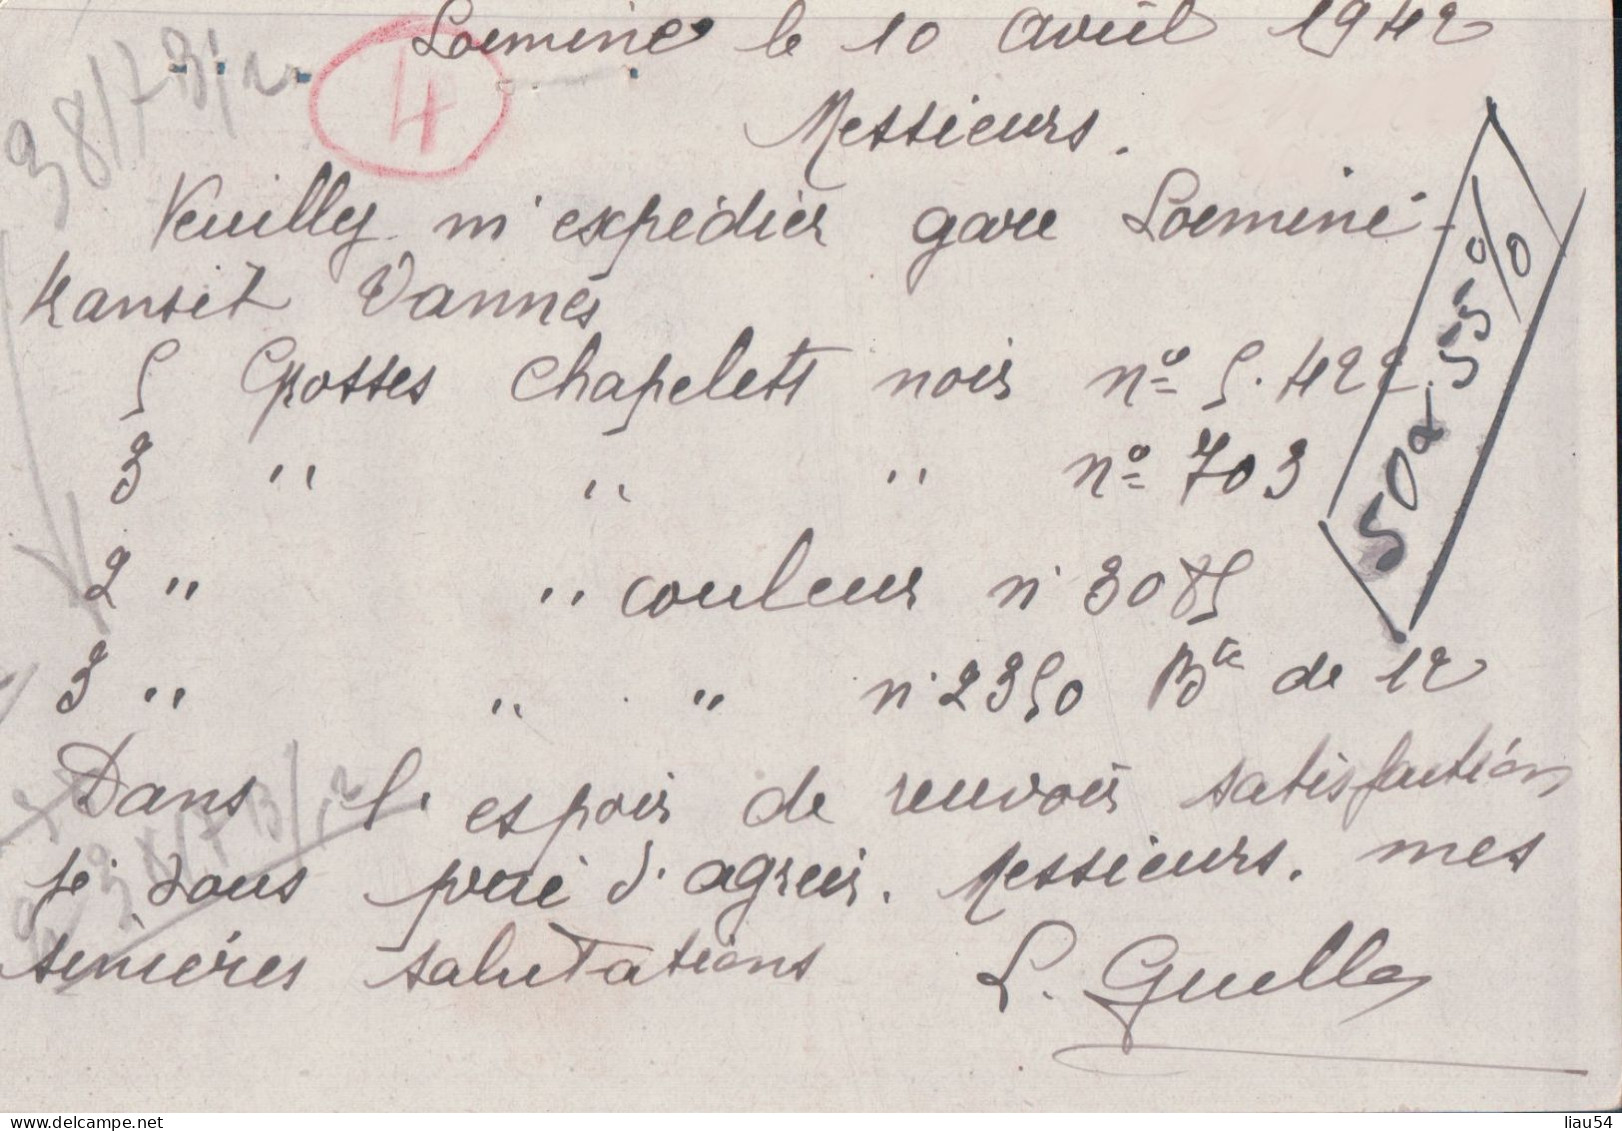 Locminé le 10 Avril 1942
4
38/73/12
Messieurs.
Veuillez m'expédier gare Locminé -
transit Vannes
5 Grosses chapelets noir nº 5.422
3 " " " nº 703
2 " " couleur n° 3085
3 " " " n° 2350 Bte de 12
50 x 55%
Dans l'espoir de recevoir satisfaction
je vous prie d'agréer. Messieurs. mes
sincères salutations L. Guello
www.delcampe.net
liau54